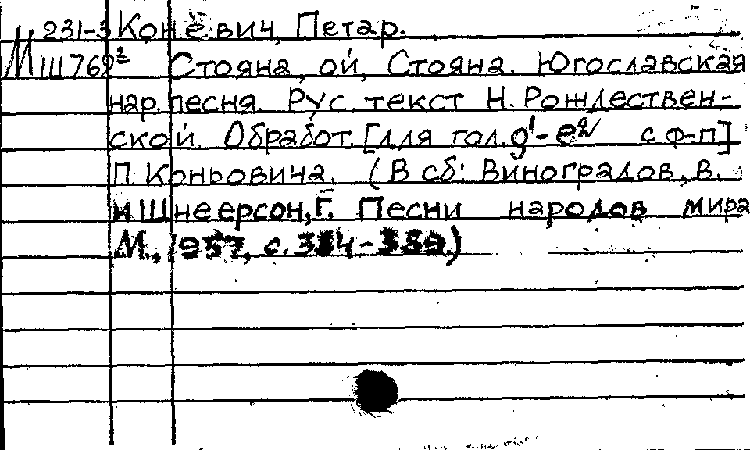 231-3 Конёвич, Петар.
МШ 769² Стояна, ой, Стояна. Югославская
нар. песня. Рус. текст Н. Рождествен-
ской. Обработ. [для гол. g¹-e² с ф-п]
П. Коньовича. (В сб: Виноградов, В.
и Шнеерсон, Г. Песни народов мира
М., 1957, с.